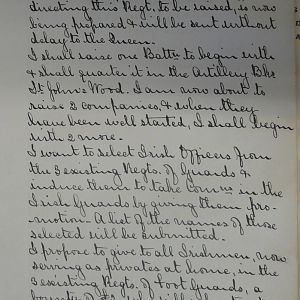 directing this Regt. to be raised, is now
being prepared & will be sent without
delay to the Queen.
I shall raise one Battn. to begin with
& shall quarter it in the Artillery Bks
St John's Wood. I am now about to
raise 2 companies, & when they
have been well started, I shall begin
with 2 more.
I want to select Irish Officers from
the 3 existing Regts. of Guards &
induce them to take Comns in the
Irish Guards by giving them pro-
motion. A list of the names of those
selected will be submitted.
I propose to give to all Irishmen, now
serving as privates at home, in the
3 existing Regts. of Foot Guards, a